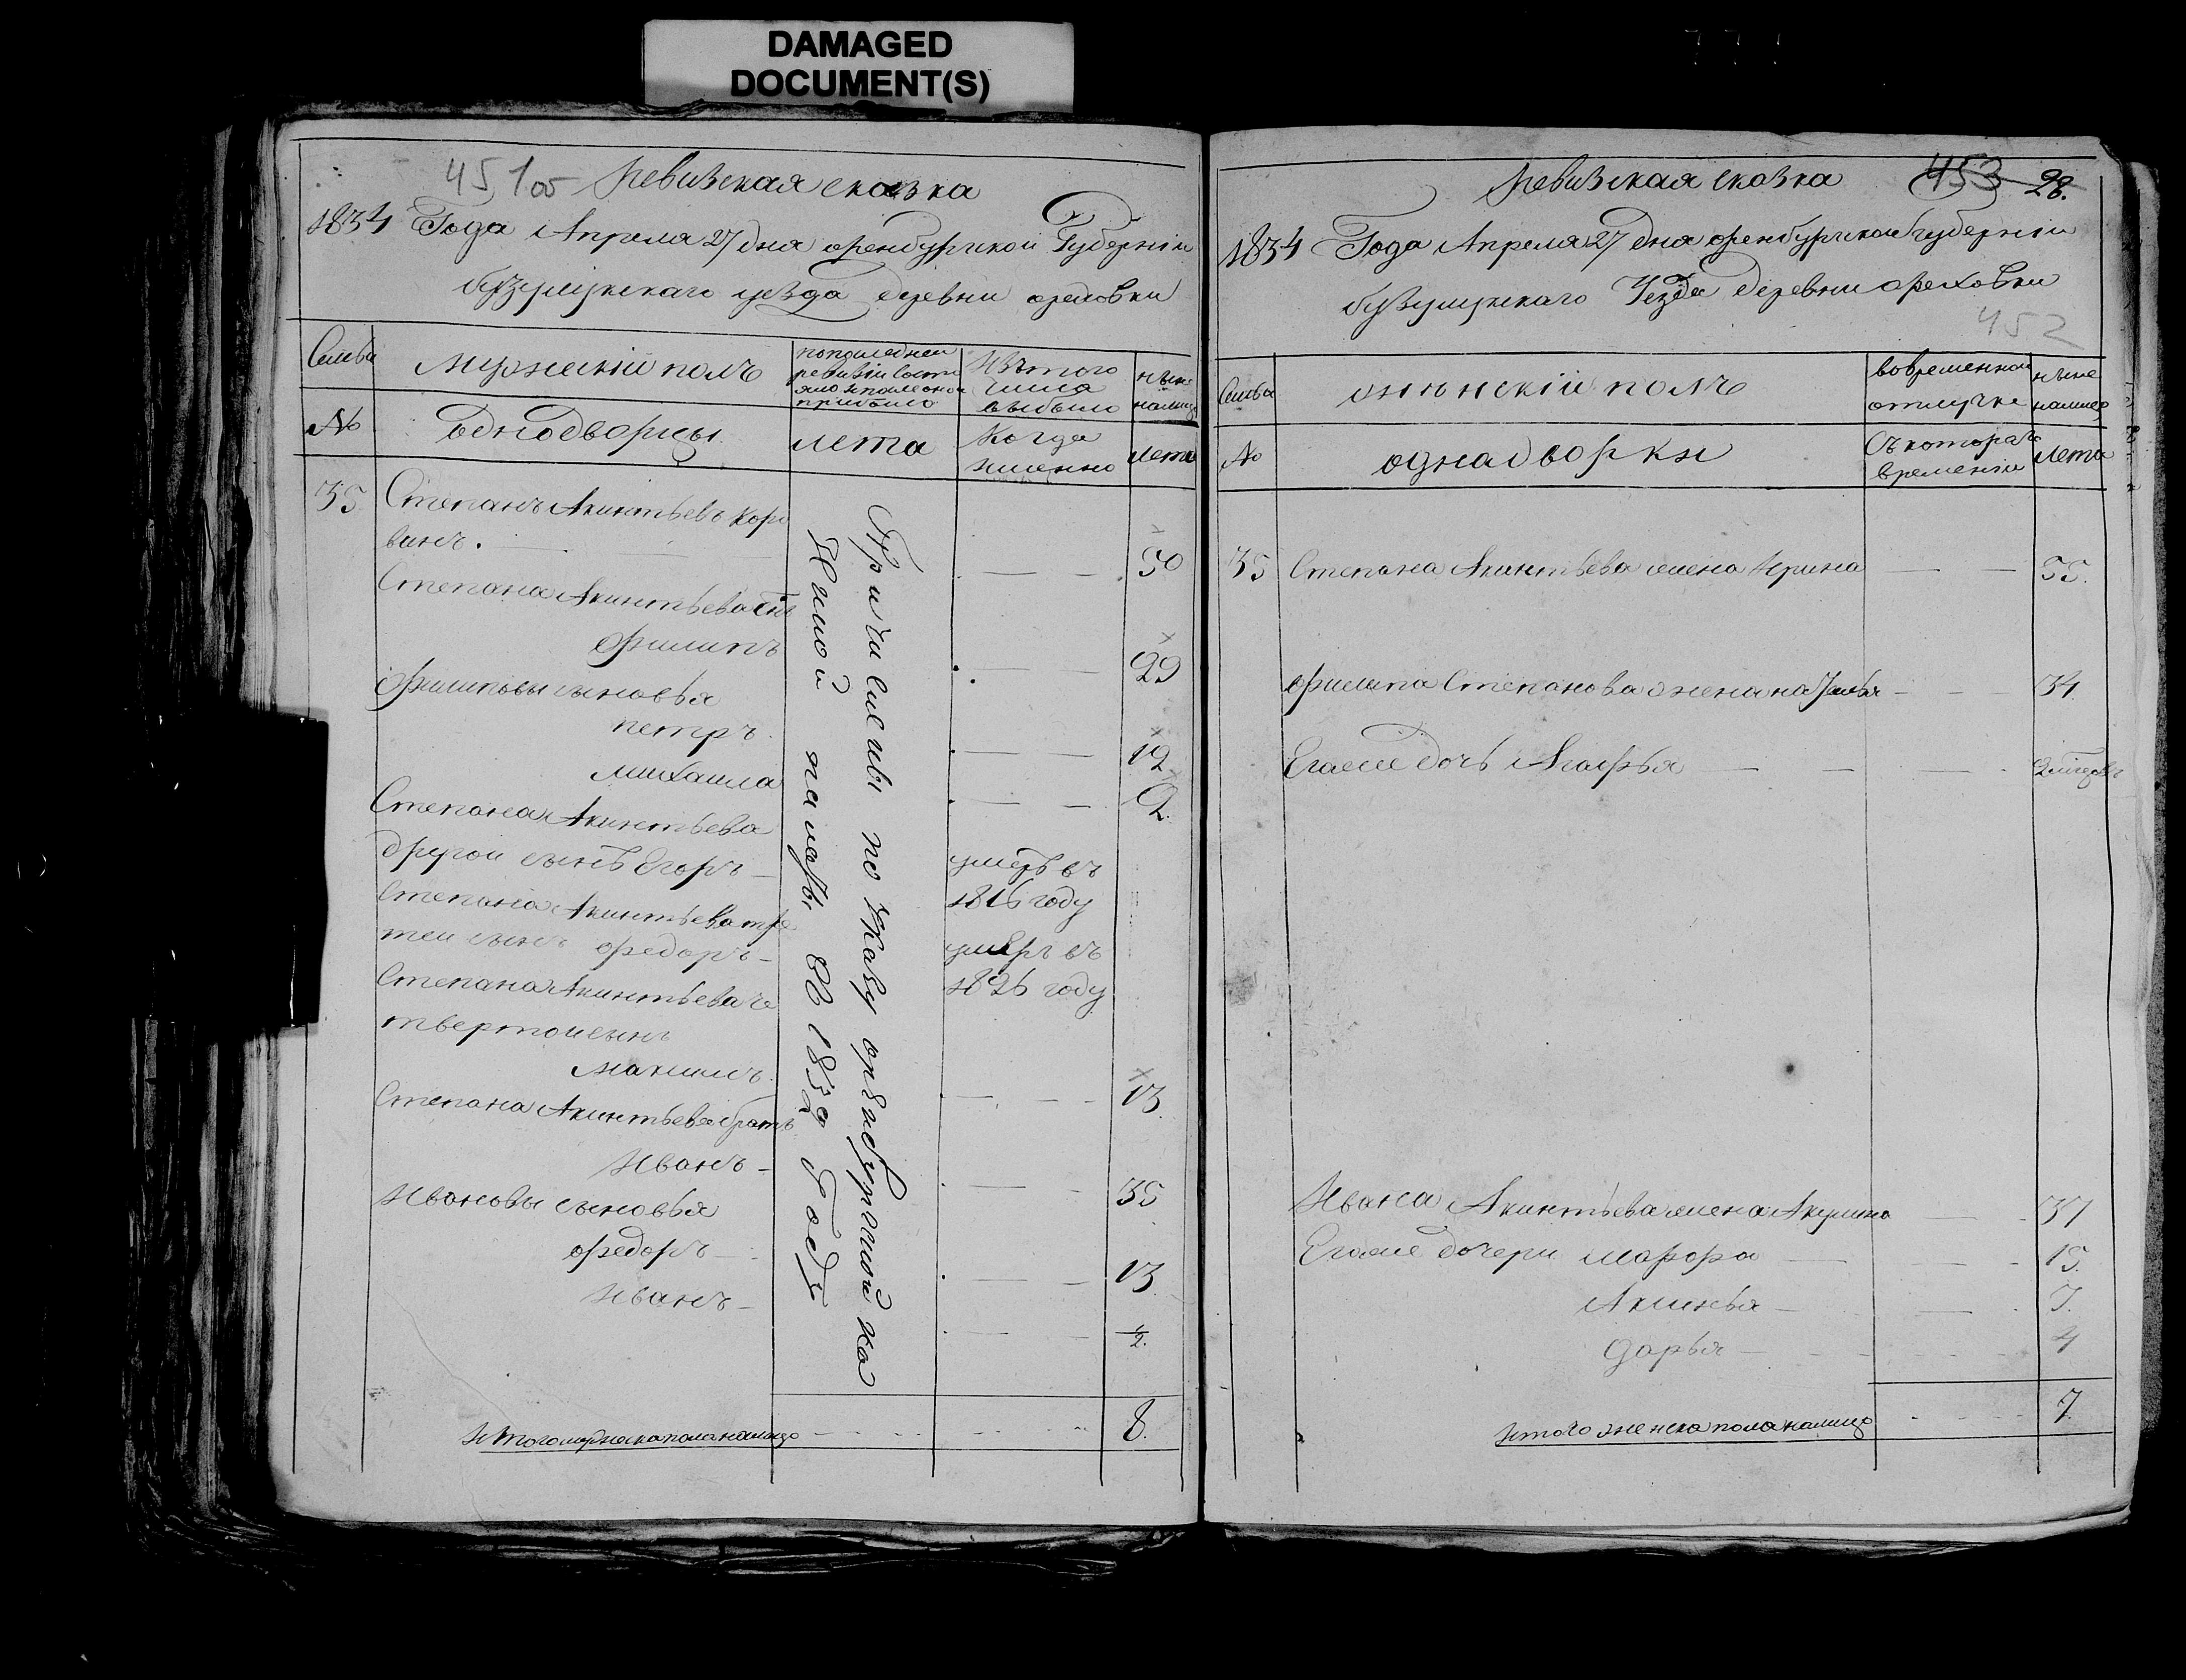 DAMAGED
DOCUMENT(S)
451 об Ревизская сказка
1834 Года Апреля 27 дня оренбургской Губернии
бузулукского уезда деревни ореховки
Семьи
мужеский полъ
по последней
ревизии состояло и после оной
прибыло
Изъ того
числа
выбыло
ныне
налицо
№
Однодворцы
лета
Когда
именно
лета
35 Степанъ Акинтьевъ Кори
ванъ.
50
Степана Акинтьева сынъ
Филипъ
29
Филиповы сыновья
петръ
12
михаила
2
Степана Акинтьева
другой сынъ Егоръ
умеръ въ
1816 году
Степана Акинтьева тре
тей сынъ Федоръ
умеръ въ
1826 году
Степана Акинтьева че
твертой сынъ
Максимъ
13
Степана Акинтьева братъ
Иванъ
35
Ивановы сыновья
Федоръ
13
Иванъ
1/2
Причислены по Указу оренбургской ка
зенной палаты въ 1832 Году
Итого мужеска пола налицо 8.
Ревизская сказка 453 28.
1834 Года Апреля 27 дня оренбургской губернии
бузулукского Уезда деревни ореховки
452
Семьи
женский полъ
во временной
отлучке
ныне
налицо
№
однадворки
Съ котораго
времени
лета
35 Степана Акинтьева жена Ирина 55.
Филипа Степанова жена 34
Егаже дочь Агафья
Ивана Акинтьева жена Акулина 37
Егаже дочери Марфа 15.
Аксинья
дарья 4
Итого женска пола налицо 7